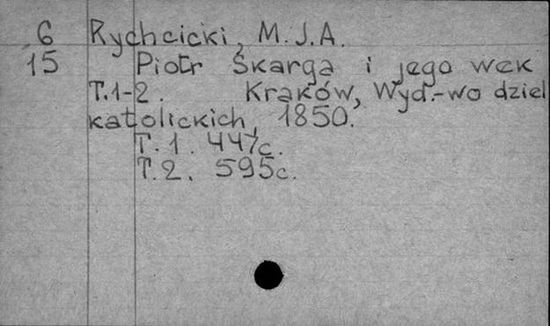 6 Rychcicki, M.J.A.
15 Piotr Skarga i jego wek
T.1-2. Kraków, Wyd.-wo dziel
katolickich, 1850.
T.1. 447c.
T.2. 595c.